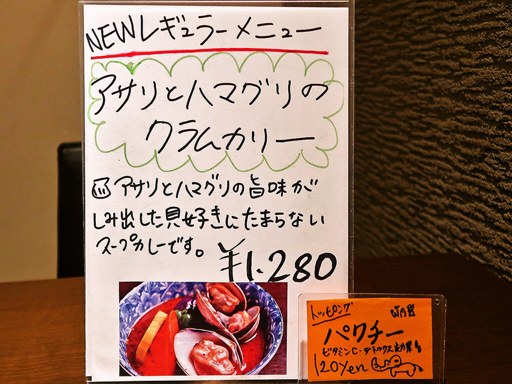 NEWレギュラーメニュー
アサリとハマグリの
クラムカリー
アサリとハマグリの旨味が
しみ出した貝好きにたまらない
スープカレーです。
¥1.280
トッピング
パクチー
ビタミンC・デトックス効果
120yen